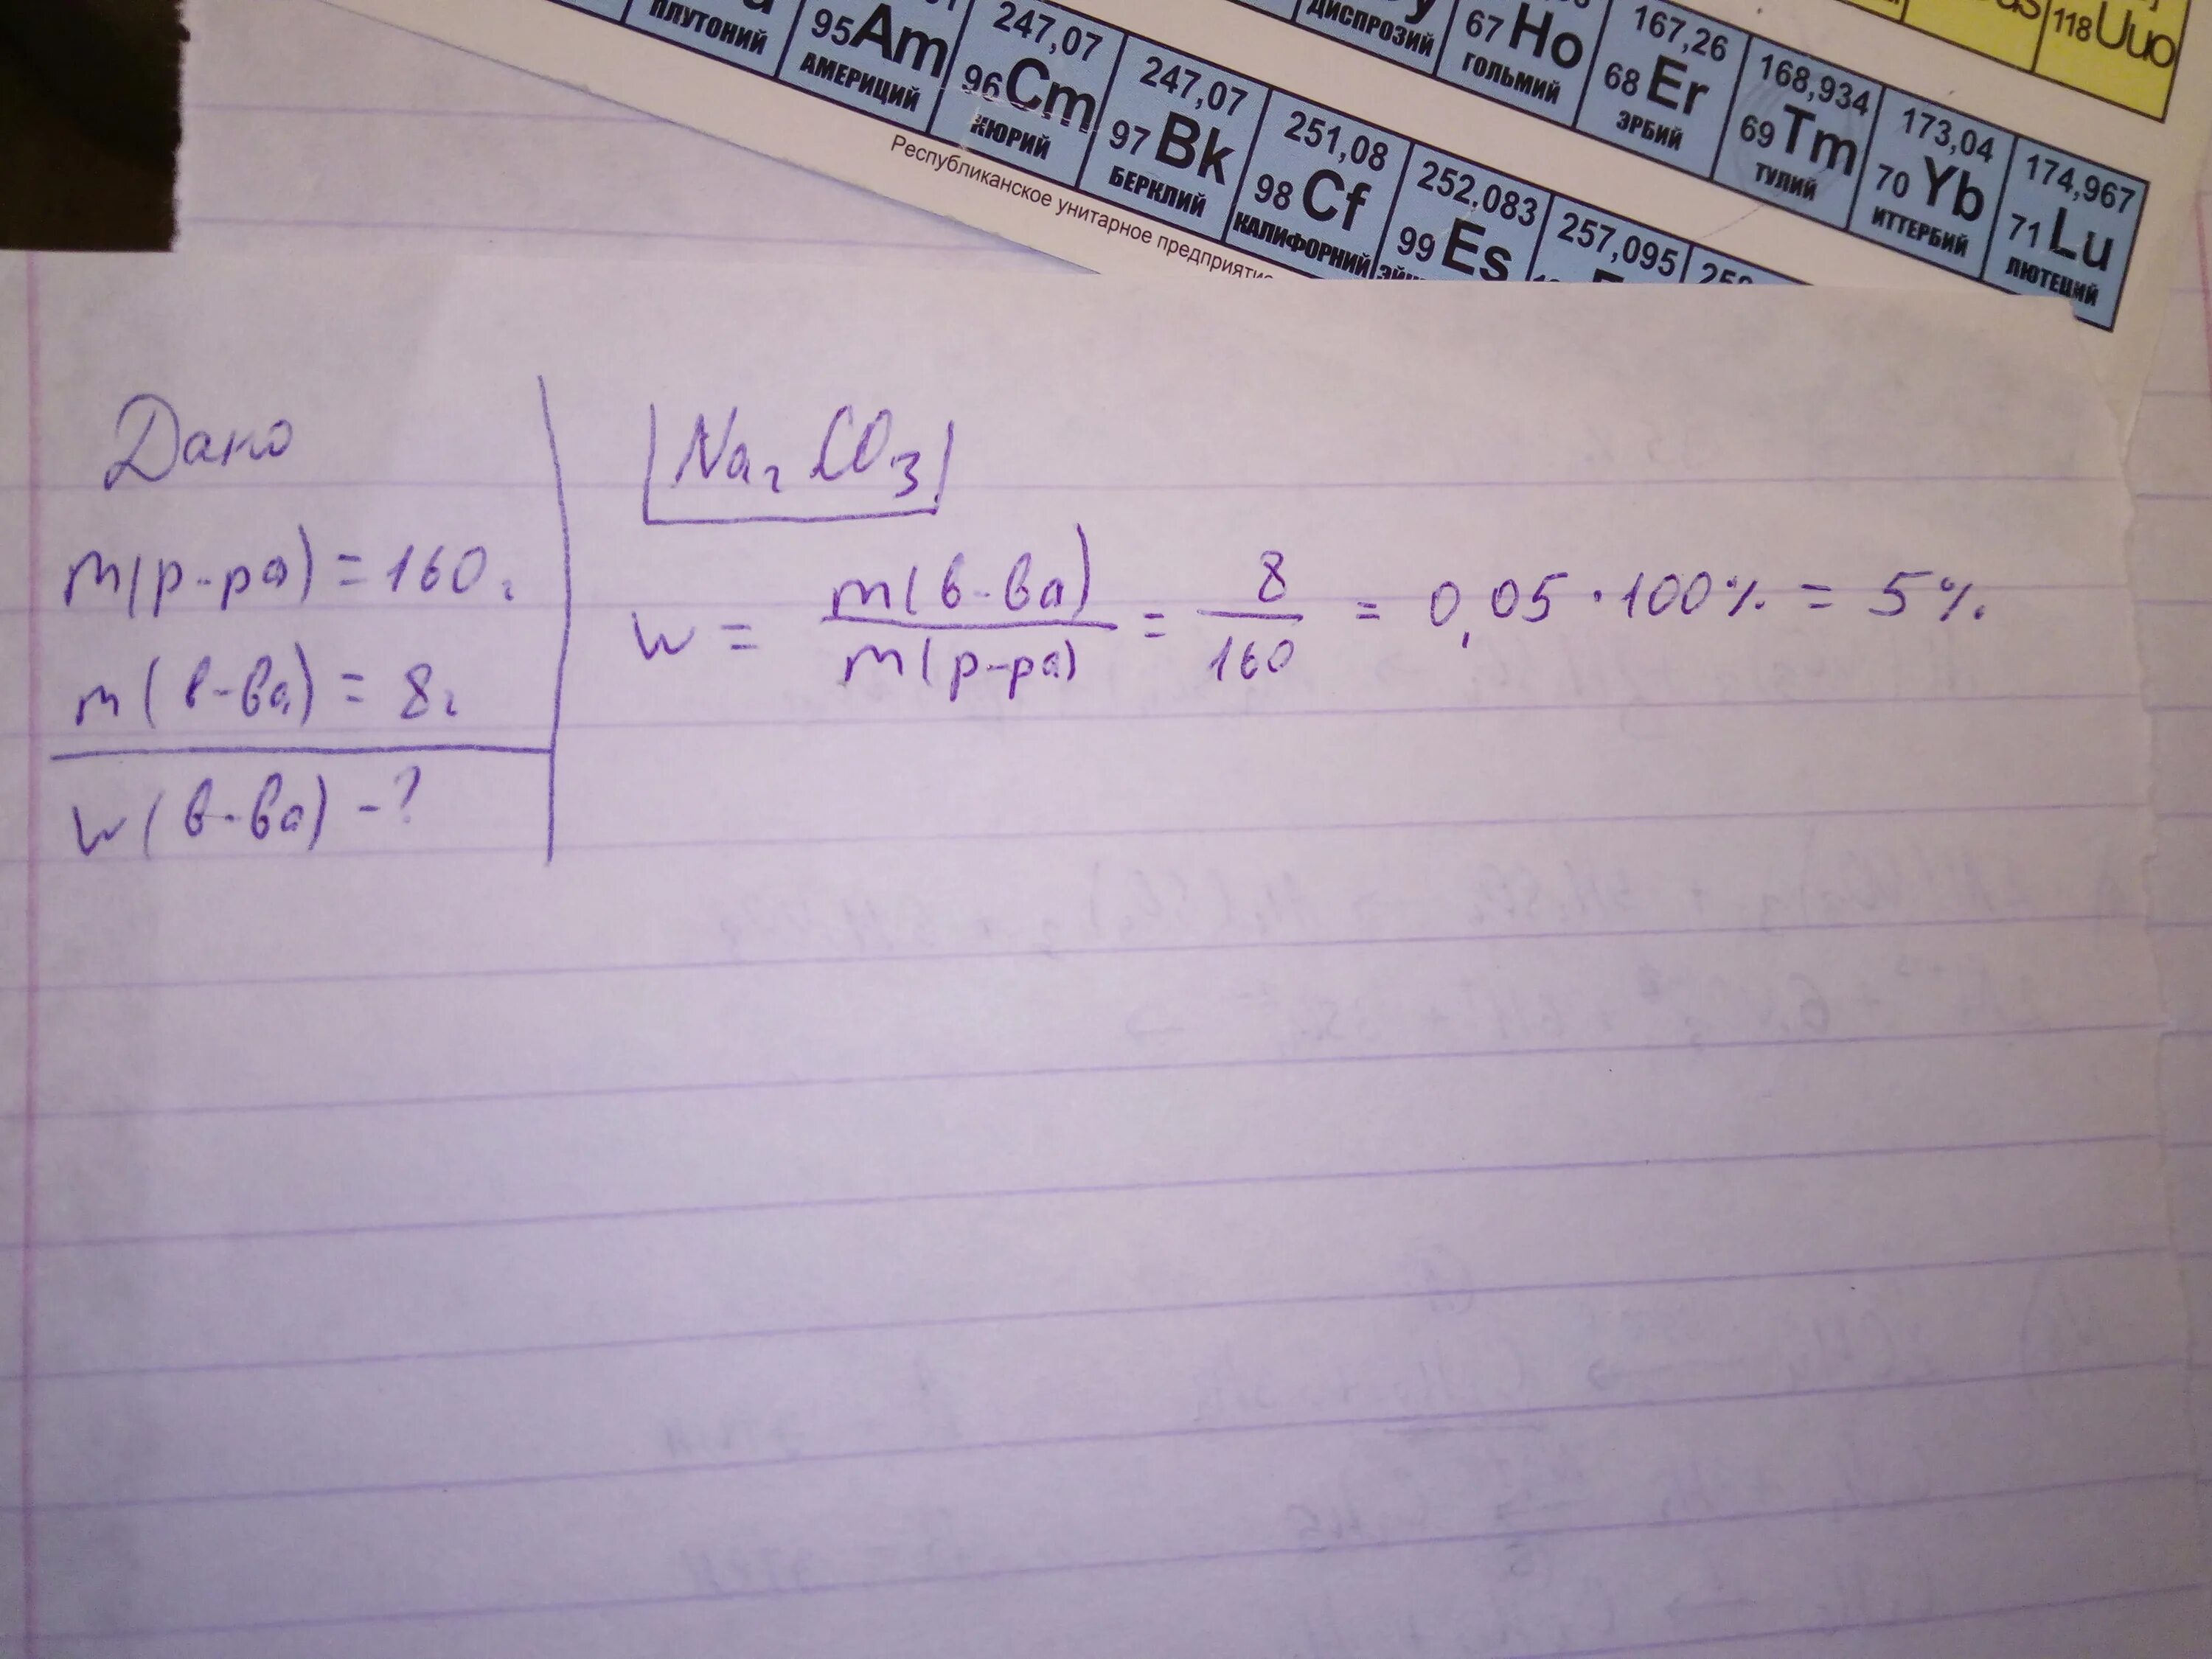 ПЛУТОНИЙ
95 Am
АМЕРИЦИЙ
247,07
96 Cm
КЮРИЙ
247,07
97 Bk
БЕРКЛИЙ
251,08
98 Cf
КАЛИФОРНИЙ
252,083
99 Es
257,095
ДИСПРОЗИЙ
67 Ho
ГОЛЬМИЙ
167,26
68 Er
ЭРБИЙ
168,934
69 Tm
ТУЛИЙ
173,04
70 Yb
ИТТЕРБИЙ
174,967
71 Lu
ЛЮТЕЦИЙ
118 Uuo
Республиканское унитарное предприятие
Дано
m(р-ра) = 160г
m(в-ва) = 8г
w(в-ва) - ?
Na2CO3
w = m(в-ва) / m(р-ра) = 8 / 160 = 0,05 · 100% = 5%